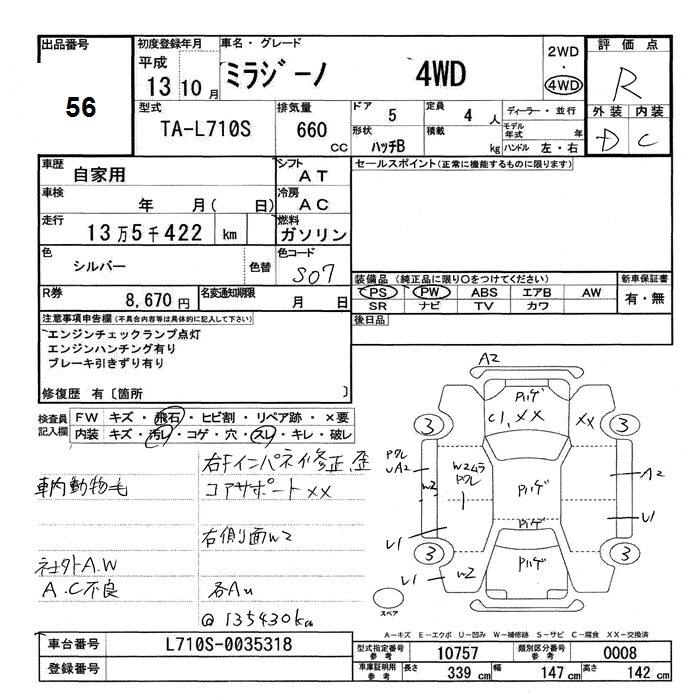 出品番号
56
初度登録年月
平成
13 10 月
車名・グレード
ミラジーノ 4WD
2WD
・
4WD
評価点
R
外装 内装
D C
型式
TA-L710S
排気量
660 CC
ドア 5
定員 4 人
形状 ハッチB
積載 kg
ディーラー・並行
モデル年式 年
ハンドル 左・右
車歴
自家用
シフト
AT
セールスポイント(正常に機能するものに限ります)
車検
年 月( 日)
冷房
AC
走行
13万5千422 km
燃料
ガソリン
色
シルバー
色替
色コード
S07
装備品 (純正品に限り○をつけてください)
新車保証書
PS PW ABS エアB AW
有・無
SR ナビ TV カワ
後日品
R券
8,670 円
名変通知期限
月 日
注意事項申告欄(不具合内容等は具体的に記入して下さい)
エンジンチェックランプ点灯
エンジンハンチング有り
ブレーキ引きずり有り
修復歴 有〔箇所 〕
検査員記入欄
FW キズ・飛石・ヒビ割・リペア跡・×要
内装 キズ・汚レ・コゲ・穴・スレ・キレ・破レ
右Fインパネ修正、歪
車内動物毛
コアサポートXX
右側面W2
社外A.W
A.C不良
各AU
@135430km
A2
ハゲ
C1,XX
XX
3
3
W2ムラ
ハゲ
A2
W2
U1
ハゲ
U1
3
3
U1
W2
ハゲ
スペア
A-キズ E-エクボ U-凹み W-補修跡 S-サビ C-腐食 XX-交換済
車台番号
L710S-0035318
登録番号
型式指定番号 参考
10757
類別区分番号 参考
0008
車庫証明用 参考
長さ 339 cm
幅 147 cm
高さ 142 cm